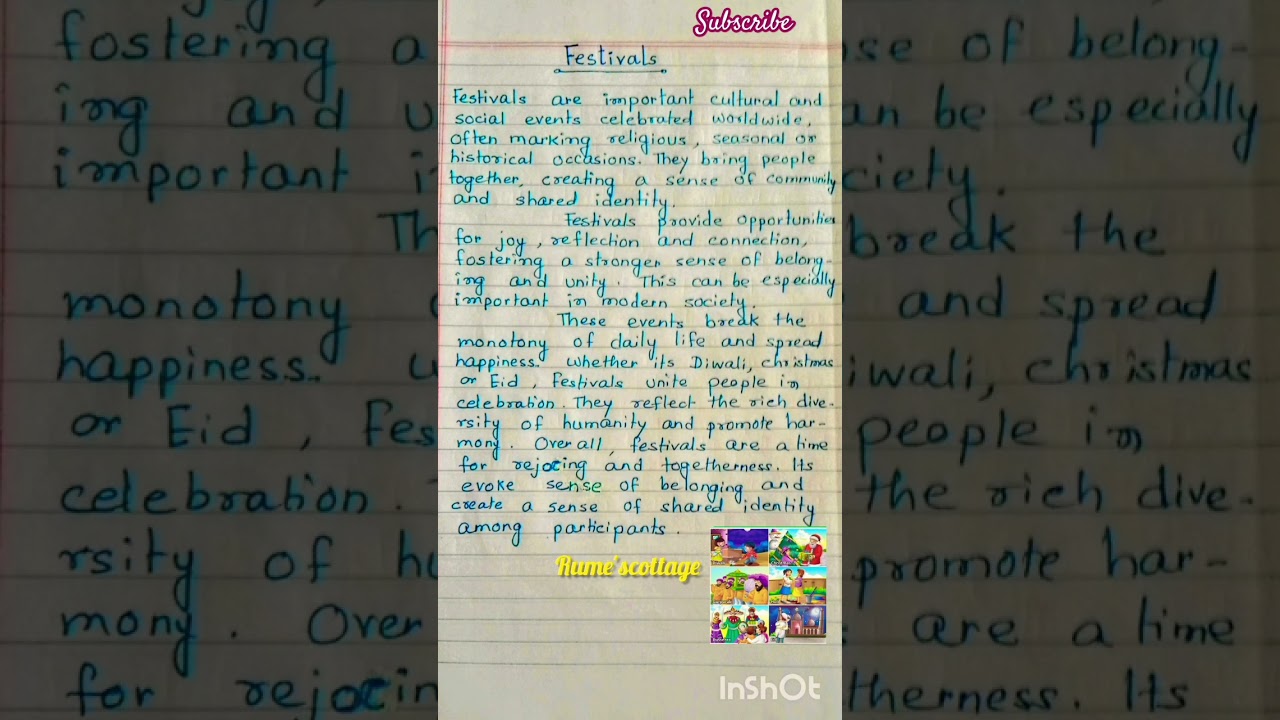 Subscribe
Festivals
Festivals are important cultural and
social events celebrated worldwide,
often marking religious, seasonal or
historical occasions. They bring people
together, creating a sense of community
and shared identity.
Festivals provide opportunities
for joy, reflection and connection,
fostering a stronger sense of belong-
ing and unity. This can be especially
important in modern society.
These events break the
monotony of daily life and spread
happiness. Whether its Diwali, christmas
or Eid, Festivals unite people in
celebration. They reflect the rich dive-
rsity of humanity and promote har-
mony. Over all, festivals are a time
for rejocing and togetherness. Its
evoke sense of belonging and
create a sense of shared identity
among participants.
Rumé'scottage
InShOt